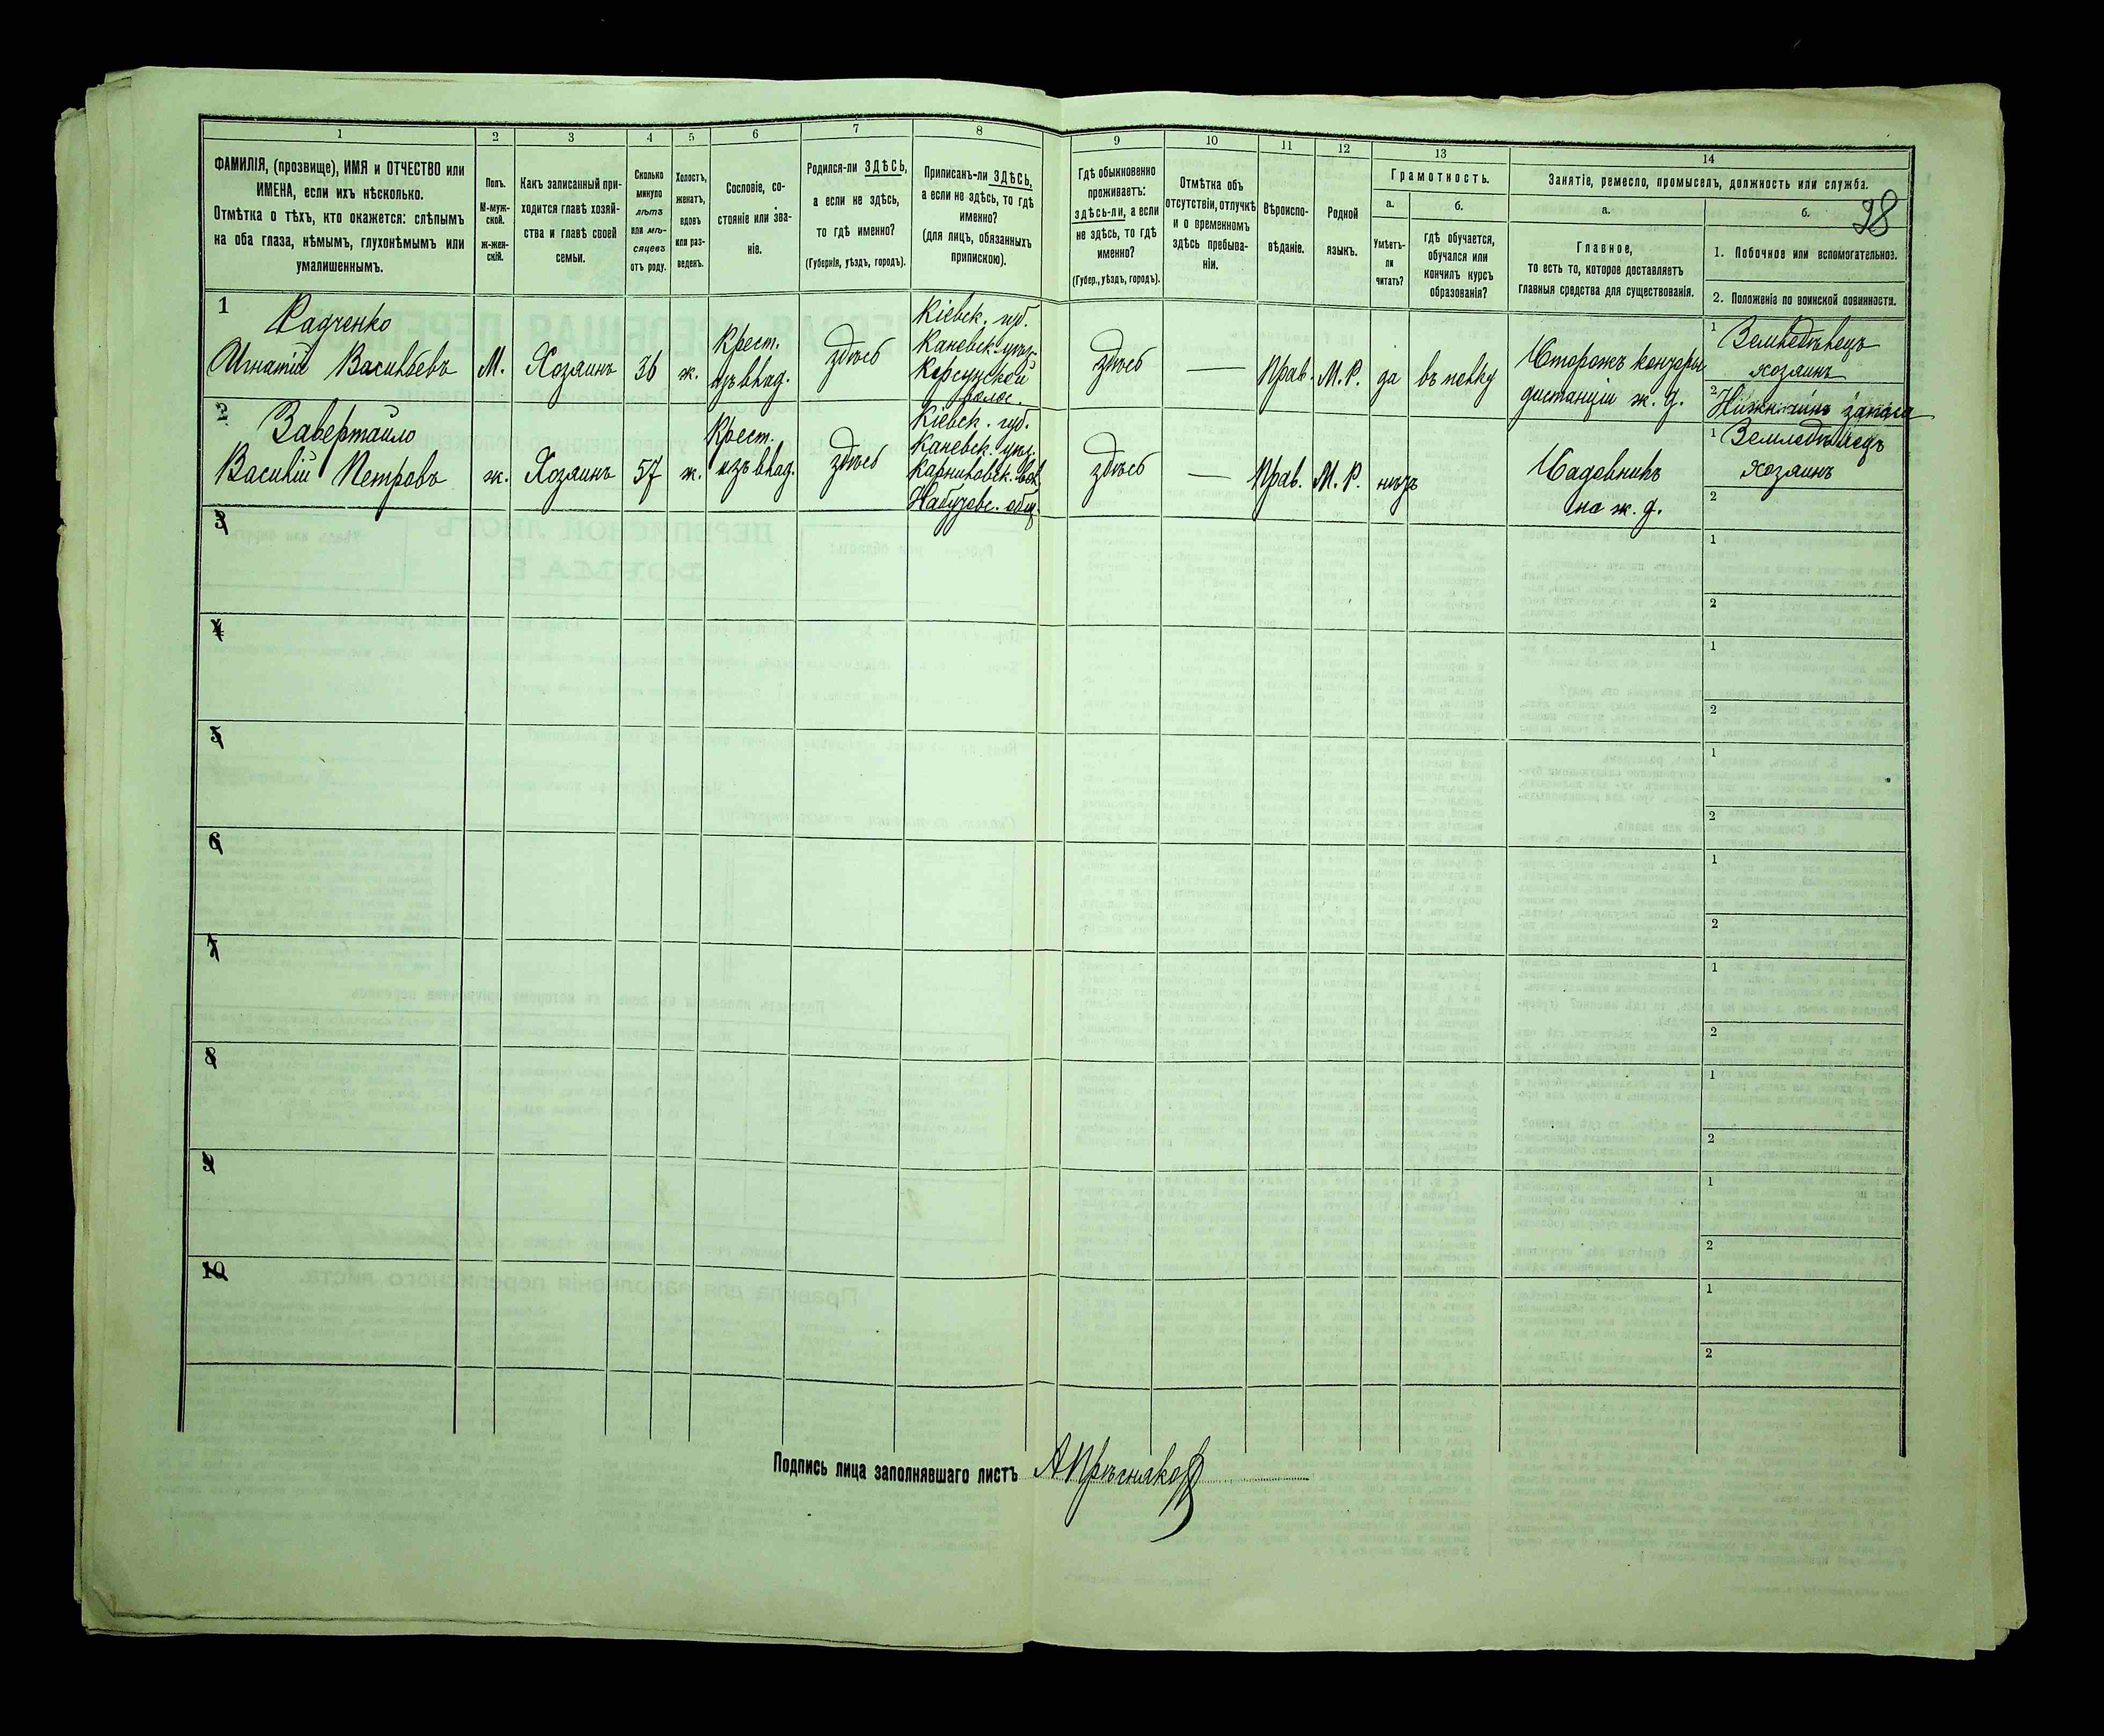 1 2 3 4 5 6 7 8 9 10 11 12 13 14
ФАМИЛІЯ, (прозвище), ИМЯ и ОТЧЕСТВО или
ИМЕНА, если ихъ нѣсколько.
Отмѣтка о тѣхъ, кто окажется: слѣпымъ
на оба глаза, нѣмымъ, глухонѣмымъ или
умалишеннымъ.
Полъ.
М-муж-
ской.
ж-жен-
скій.
Какъ записанный при-
ходится главѣ хозяй-
ства и главѣ своей
семьи.
Сколько
минуло
лѣтъ
или мѣ-
сяцевъ
отъ роду.
Холостъ,
женатъ,
вдовъ
или раз-
веденъ.
Сословіе, со-
стояніе или зва-
ніе.
Родился-ли ЗДѢСЬ,
а если не здѣсь,
то гдѣ именно?
(Губернія, уѣздъ, городъ).
Приписанъ-ли ЗДѢСЬ,
а если не здѣсь, то гдѣ
именно?
(для лицъ, обязанныхъ
припискою).
Гдѣ обыкновенно
проживаетъ:
здѣсь-ли, а если
не здѣсь, то гдѣ
именно?
(Губер., уѣздъ, городъ).
Отмѣтка объ
отсутствіи, отлучкѣ
и о временномъ
здѣсь пребыва-
ніи.
Вѣроиспо-
вѣданіе.
Родной
языкъ.
Грамотность.
а.
Умѣетъ-
ли
читать?
б.
гдѣ обучается,
обучался или
кончилъ курсъ
образованія?
Занятіе, ремесло, промыселъ, должность или служба.
а.
Главное,
то есть то, которое доставляетъ
главныя средства для существованія.
б.
28
1. Побочное или вспомогательное.
2. Положеніе по воинской повинности.
1
Радченко
Игнатій Васильевъ
М.
Хозяинъ
36
ж.
Крест.
изъ влад.
здѣсь
Кіевск. губ.
Каневск. уѣзд.
Корсунской
волос.
здѣсь
—
Прав.
М.Р.
да
въ полку
Сторожъ конторы
дистанціи ж. д.
1 Земледѣлецъ
хозяинъ
2 Нижн. чинъ запаса
2
Завертайло
Василій Петровъ
ж.
Хозяинъ
57
ж.
Крест.
изъ влад.
здѣсь
Кіевск. губ.
Каневск. уѣз.
здѣсь
—
Прав.
М.Р.
нѣтъ
Садовникъ
на ж. д.
1 Земледѣлецъ
хозяинъ
2
3
1
2
4
1
2
5
1
2
6
1
2
7
1
2
8
1
2
9
1
2
10
1
2
Подпись лица заполнявшаго листъ